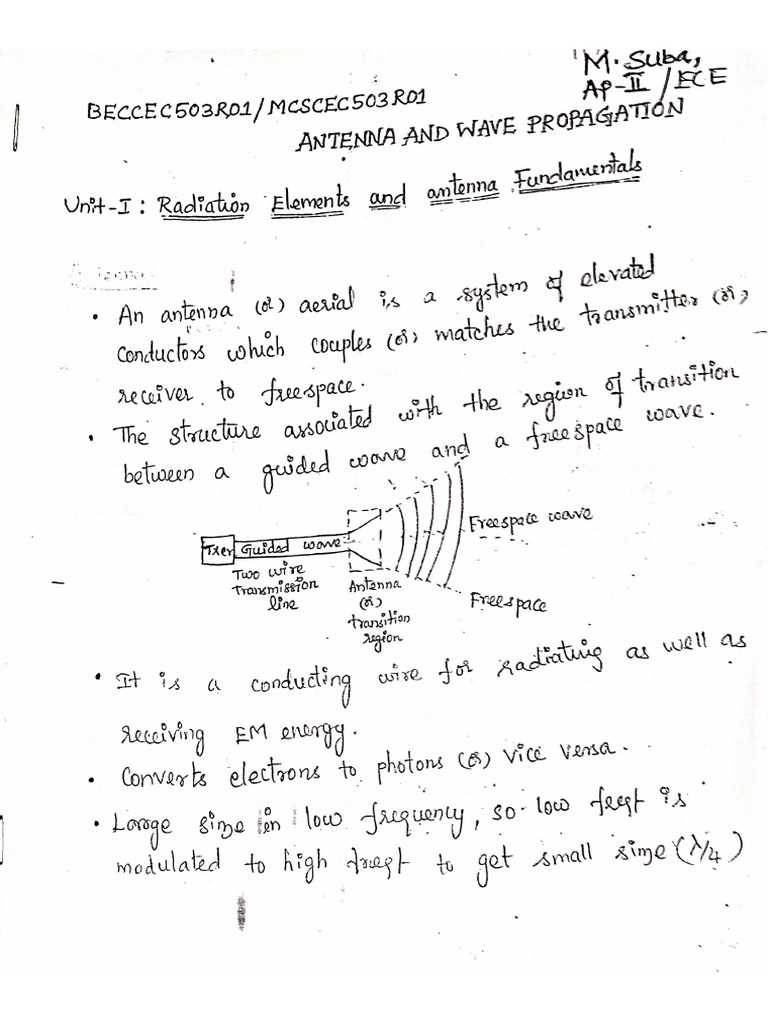 M. Suba,
AP-II / ECE
BECCEC503R01/MCSCEC503R01
ANTENNA AND WAVE PROPAGATION
Unit-I : Radiation Elements and antenna Fundamentals
• An antenna (or) aerial is a system of elevated
conductors which couples (or) matches the transmitter (or)
receiver to freespace.
• The structure associated with the region of transition
between a guided wave and a freespace wave.
Txer Guided wave
Two wire
transmission
line
Antenna
(or)
transition
region
Freespace wave
Freespace
• It is a conducting wire for radiating as well as
receiving EM energy.
• Converts electrons to photons (or) vice versa.
• Large size in low frequency, so low is
modulated to high to get small size (λ/4)